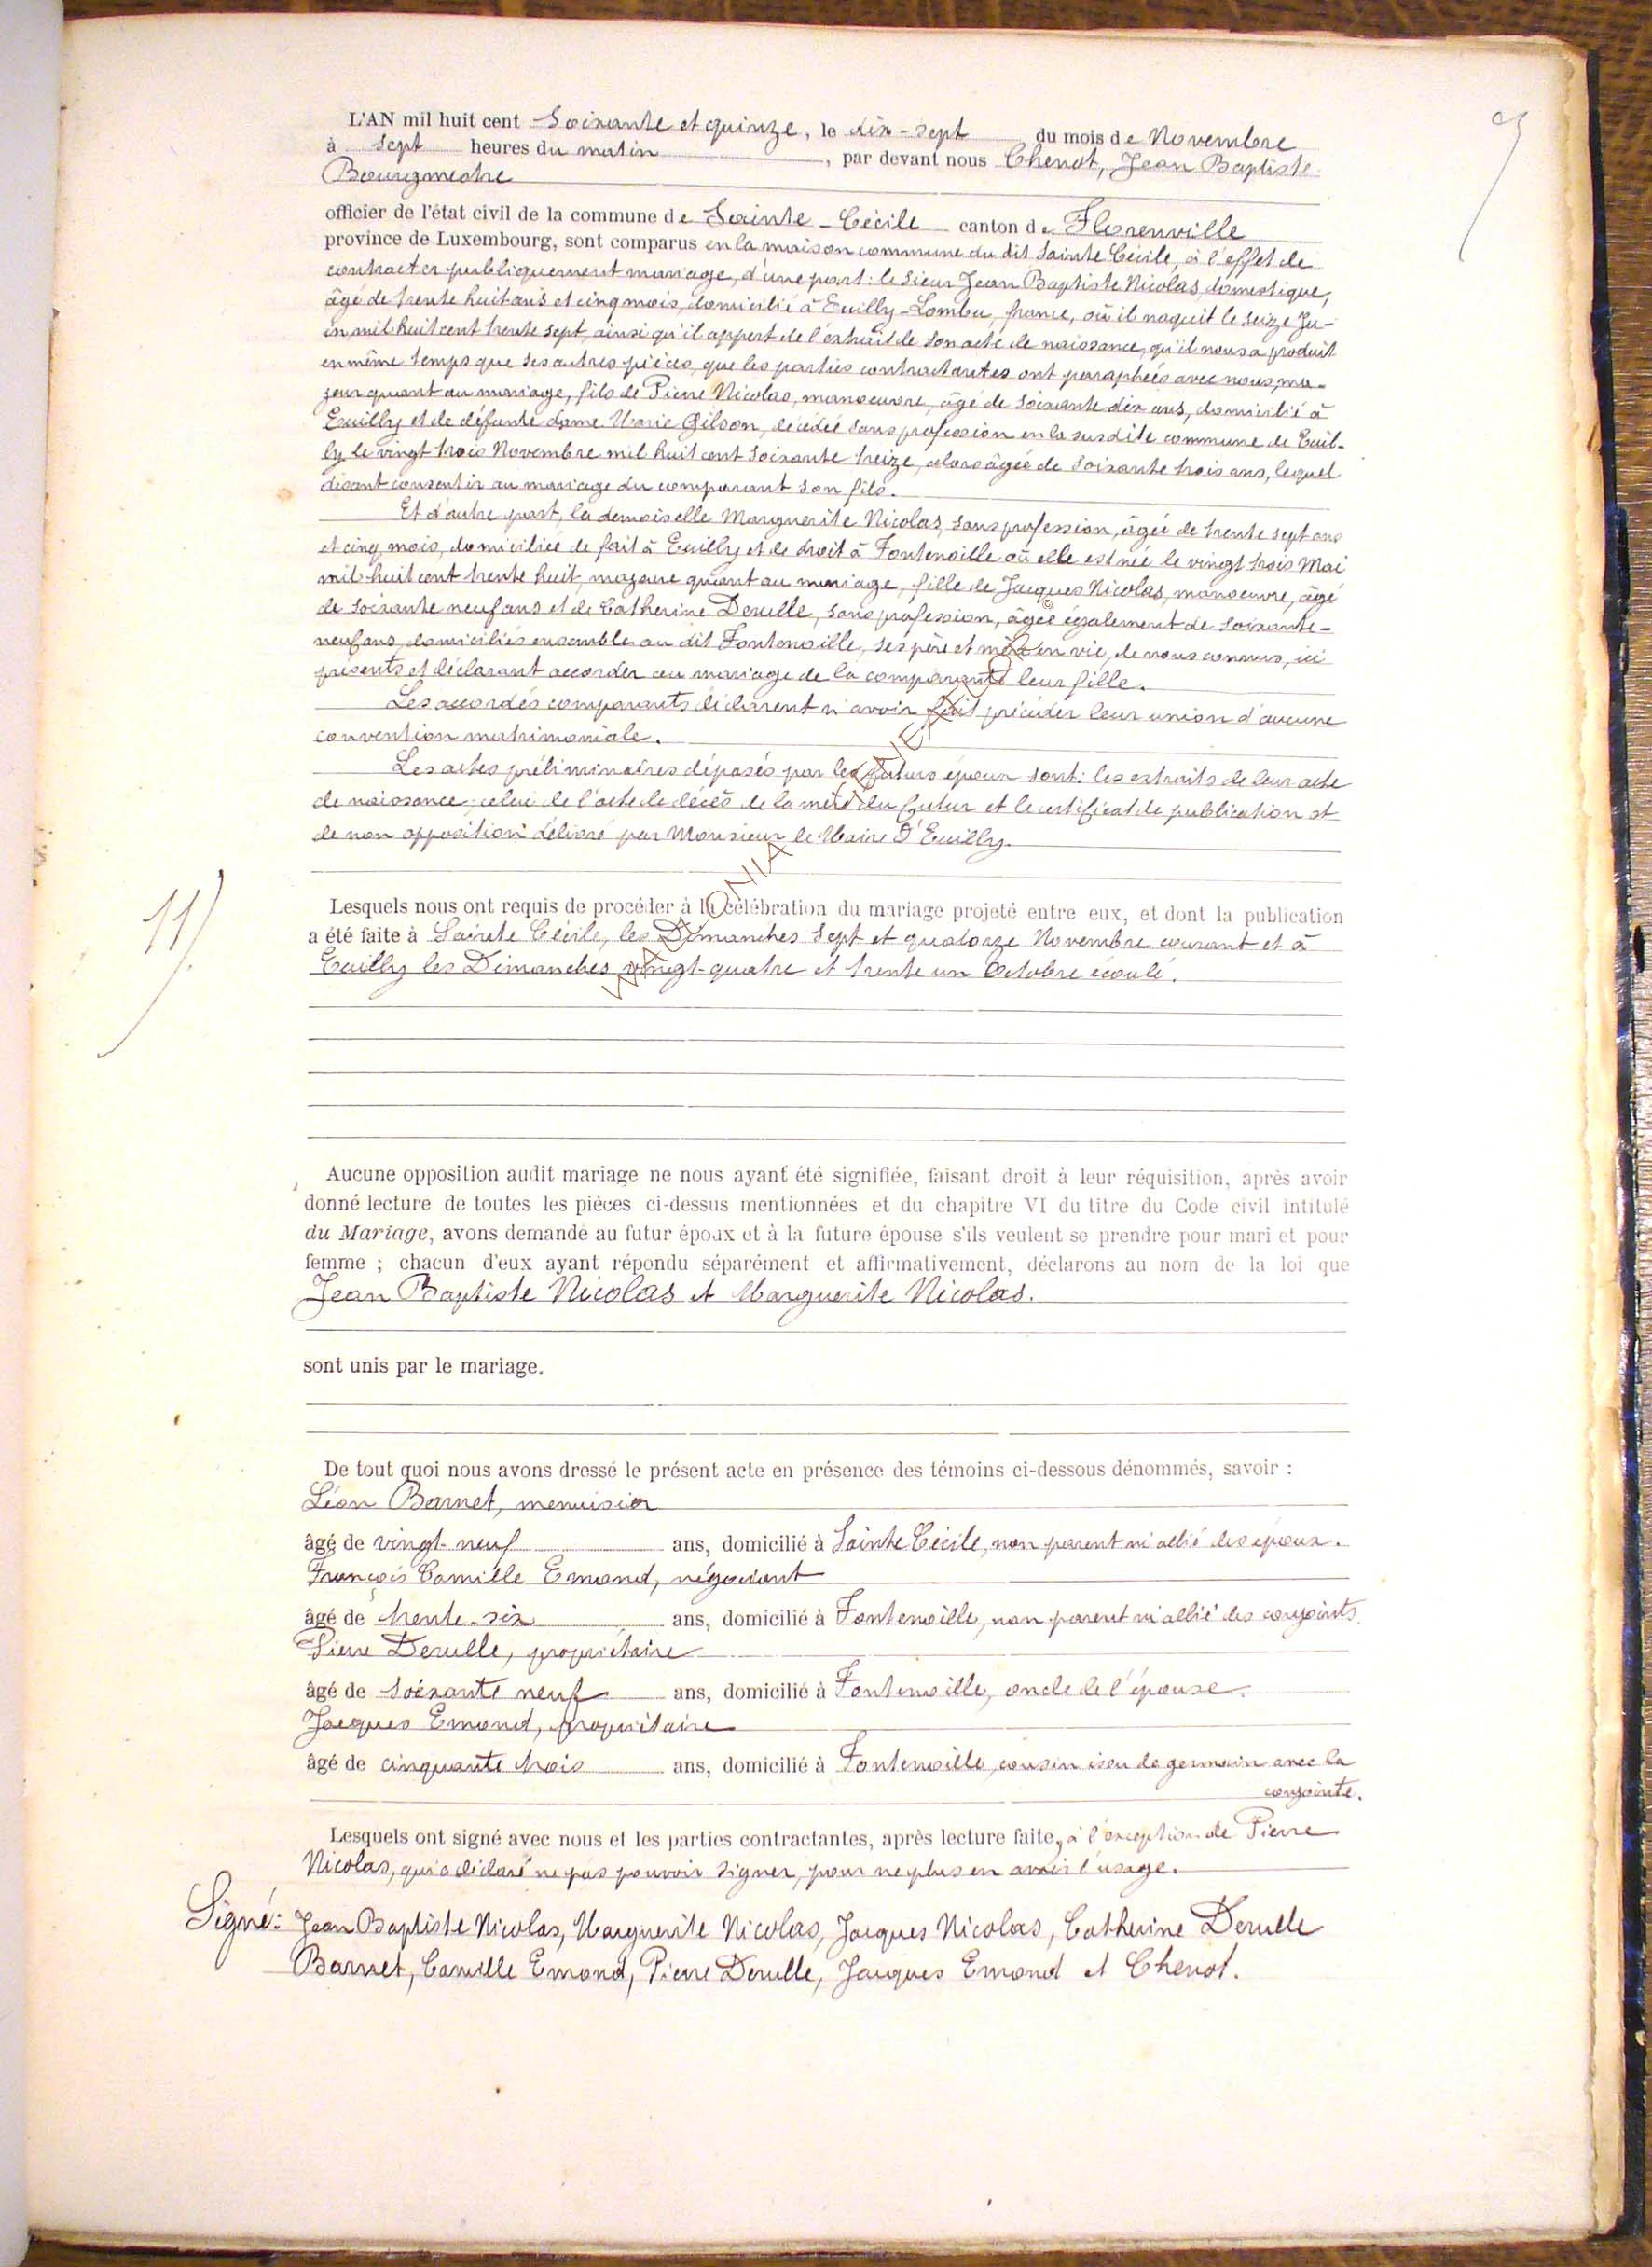 9
L'AN mil huit cent Soixante et quinze, le dix-sept du mois de Novembre
à sept heures du matin, par devant nous Chenot, Jean Baptiste
Bourgmestre
officier de l'état civil de la commune de Sainte-Cécile canton de Florenville
province de Luxembourg, sont comparus en la maison commune du dit Sainte Cécile, à l'effet de
contracter publiquement mariage, d'une part: le Sieur Jean Baptiste Nicolas, domestique,
âgé de trente huit ans et cinq mois, domicilié à Euilly-Lombu, france, où il naquit le seize Ju-
in mil huit cent trente sept, ainsi qu'il appert de l'extrait de son acte de naissance, qu'il nous a produit
en même temps que ses autres pièces, que les parties contractantes ont paraphées avec nous, ma-
jeur quant au mariage, fils de Pierre Nicolas, manoeuvre, âgé de soixante dix ans, domicilié à
Euilly et de défunte dame Marie Gilson, décédée sans profession en la susdite commune de Euil-
ly le vingt trois Novembre mil huit cent soixante treize, alors âgée de soixante trois ans, lequel
disant consentir au mariage du comparant son fils.
Et d'autre part, la demoiselle Marguerite Nicolas, sans profession, âgée de trente sept ans
et cinq mois, domiciliée de fait à Euilly et de droit à Fontenoille où elle est née le vingt trois Mai
mil-huit cent trente huit, majeure quant au mariage, fille de Jacques Nicolas, manoeuvre, âgé
de soixante neuf ans et de Catherine Derulle, sans profession, âgée également de soixante-
neuf ans, domiciliés ensemble au dit Fontenoille, ses père et mère en vie, de nous connus, ici
présents et déclarant accorder au mariage de la comparante leur fille.
Les accordés comparants déclarent n'avoir fait précéder leur union d'aucune
convention matrimoniale.
Les actes préliminaires déposés par les futurs époux sont: les extraits de leur acte
de naissance, celui de l'acte de décès de la mère du futur et le certificat de publication et
de non opposition délivré par Monsieur le Maire d'Euilly.
11)
Lesquels nous ont requis de procéder à la célébration du mariage projeté entre eux, et dont la publication
a été faite à Sainte Cécile, les Dimanches sept et quatorze Novembre courant et à
Euilly les Dimanches vingt-quatre et trente un Octobre écoulé.
Aucune opposition audit mariage ne nous ayant été signifiée, faisant droit à leur réquisition, après avoir
donné lecture de toutes les pièces ci-dessus mentionnées et du chapitre VI du titre du Code civil intitulé
du Mariage, avons demandé au futur époux et à la future épouse s'ils veulent se prendre pour mari et pour
femme ; chacun d'eux ayant répondu séparément et affirmativement, déclarons au nom de la loi que
Jean Baptiste Nicolas et Marguerite Nicolas.
sont unis par le mariage.
De tout quoi nous avons dressé le présent acte en présence des témoins ci-dessous dénommés, savoir :
Léon Barnet, menuisier
âgé de vingt-neuf ans, domicilié à Sainte Cécile, non parent ni allié des époux.
François Camille Emond, négociant
âgé de trente-six ans, domicilié à Fontenoille, non parent ni allié des conjoints.
Pierre Derulle, propriétaire
âgé de soixante neuf ans, domicilié à Fontenoille, oncle de l'épouse.
Jacques Emond, propriétaire
âgé de cinquante trois ans, domicilié à Fontenoille, cousin issu de germain avec la
conjointe.
Lesquels ont signé avec nous et les parties contractantes, après lecture faite, à l'exception de Pierre
Nicolas, qui a déclaré ne pas pouvoir signer, pour ne plus en avoir l'usage.
Signé: Jean Baptiste Nicolas, Marguerite Nicolas, Jacques Nicolas, Catherine Derulle
Barnet, Camille Emond, Pierre Derulle, Jacques Emond et Chenot.